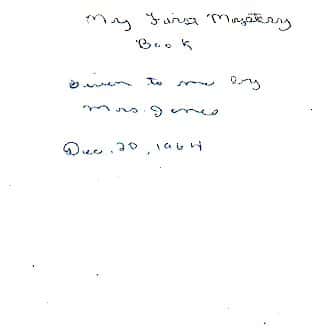 My First Mystery
Book
Given to me by
Mrs. Jones
Dec. 20, 1964